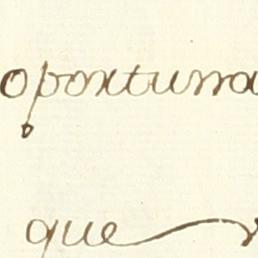 oportuna
que